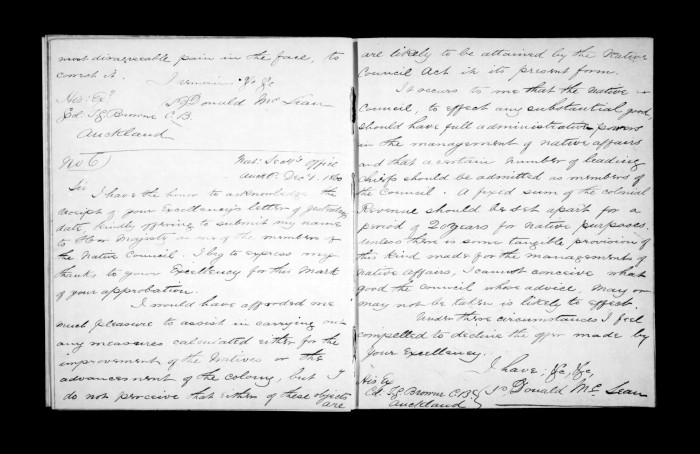 most disagreeable pain in the face, to
correct it.
I remain &c &c
Sd/ Donald Mc Lean
His Exy
Col. T. G. Browne C.B.
Auckland
No 6)
Nat: Secy's Office
Auckd. Decr 1. 1860
Sir
I have the honor to acknowledge the
receipt of your Excellency's letter of yesterdays
date, kindly offering to submit my name
to Her Majesty as one of the members of
the Native Council. I beg to express my
thanks to your Excellency for this mark
of your approbation.
I would have afforded me
much pleasure to assist in carrying out
any measures calculated either for the
improvement of the Natives or the
advancement of the colony, but I
do not perceive that either of these objects
are
are likely to be attained by the Native
Council Act in its present form.
It occurs to me that the Native
Council, to effect any substantial good,
should have full administrative powers
in the management of native affairs
and that a certain number of leading
Chiefs should be admitted as members of
the Council. A fixed sum of the colonial
Revenue should be set apart for a
period of 20 years for native purposes.
Unless there is some tangible provision of
this kind made for the management of
native affairs, I cannot conceive what
good the council whose advice may or
may not be taken is likely to effect.
Under these circumstances I feel
compelled to decline the offer made by
Your Excellency.
I have, &c, &c,
Sd/ Donald Mc Lean
His Ex
Col. T. G. Browne C.B.
Auckland